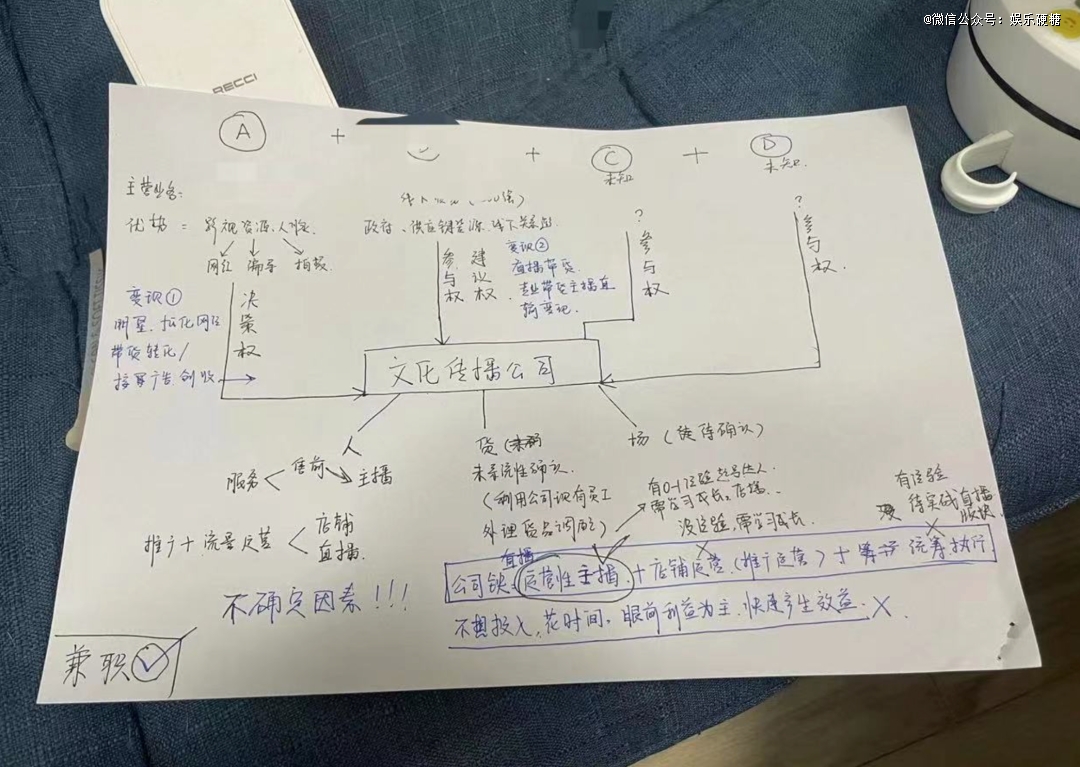 @微信公众号：娱乐硬糖
RECCI
A + + C + D
未知
未知
主营业务：
优势 = 影视资源、人脉
网红 编导 拍摄
政府、供应链资源、线下关系
?
?
变现①
明星、孵化网红
带货转化/
接单广告创收
决策权
参与权
建议权
变现②
直播带货
专业带货主播直
输变现
参与权
参与权
文化传播公司
人
服务 售前 主播
推广+流量运营 店铺
直播
货（
未系统性确认
（利用公司现有员工
外理货品调配）
场（待确认）
有0-1经验起号达人
需学习成长、店播
没经验，需学习成长
有经验
待实战直播
直播
公司缺 运营性主播 + 店铺运营（推广运营）+ 统筹执行
不想投入，花时间，眼前利益为主，快速产生效益 X
不确定因素!!!
兼职